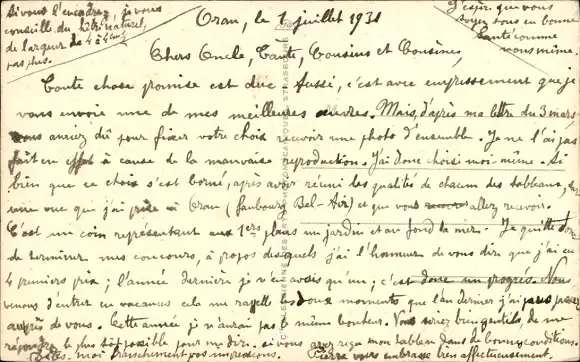 Si vous l'encadrez, je vous
conseille du hêtre naturel,
de largeur de 4 à 4 cm ½
pas plus.
J'espère que vous
soyez tous en bonne
santé comme
nous même.
Oran, le 1 juillet 1931
Chers Oncle, Tante, Cousins et Cousines,
Toute chose promise est due. Aussi, c'est avec empressement que je
vous envoie une de mes meilleures œuvres. Mais, d'après ma lettre du 3 mars,
vous auriez dû pour fixer votre choix recevoir une photo d'ensemble. Je ne l'ai pas
fait en effet à cause de la mauvaise reproduction. J'ai donc choisi moi-même. Si
bien que ce choix s'est borné, après avoir réuni les qualités de chacun des tableaux, sur
une vue que j'ai prise à Oran (faubourg Bel-Air) et que vous allez recevoir.
C'est un coin représentant aux 1ers plans un jardin et au fond la mer. Je quitte donc
de terminer mes concours, à propos desquels j'ai l'honneur de vous dire que j'ai eu
4 premiers prix ; l'année dernière je n'en avais qu'un ; c'est donc un progrès. Nous
venons d'entrer en vacances cela me rappelle les doux moments que l'an dernier j'ai passés
auprès de vous. Cette année je n'aurai pas le même bonheur. Vous seriez bien gentils de me
répondre le plus tôt possible pour me dire si vous avez reçu mon tableau dans de bonnes conditions.
Dites-moi franchement vos impressions. Pierre vous embrasse bien affectueusement.